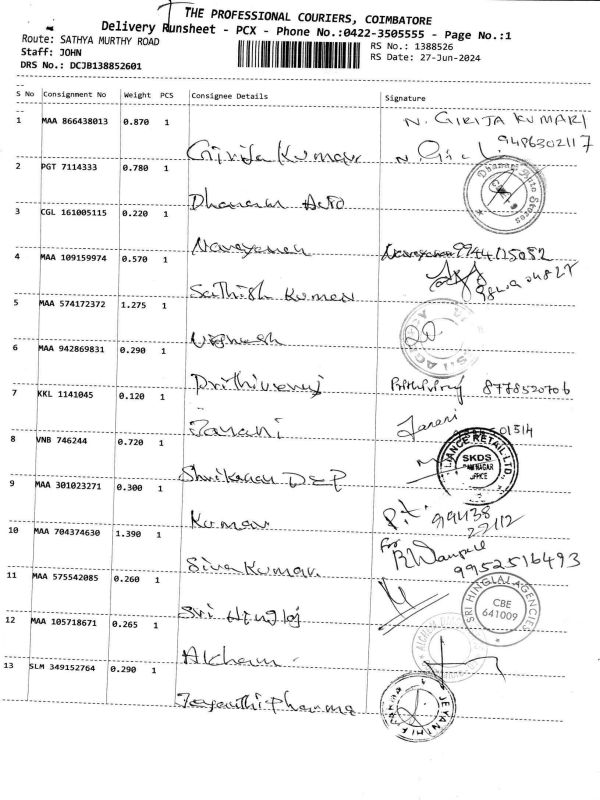 THE PROFESSIONAL COURIERS, COIMBATORE
Delivery Runsheet - PCX - Phone No.:0422-3505555 - Page No.:1
Route: SATHYA MURTHY ROAD
RS No.: 1388526
Staff: JOHN
RS Date: 27-Jun-2024
DRS No.: DCJB138852601
*DCJB138852601*
S No Consignment No Weight PCS Consignee Details Signature
1 MAA 866438013 0.870 1 N. GIRIJA KUMARI
Girija Kumar 9486302117
2 PGT 7114333 0.780 1
Dhanam Auto Dhanam Auto Stores
3 CGL 161005115 0.220 1
Narayanan Narayanan
4 MAA 109159974 0.570 1
Sathish Kumar
5 MAA 574172372 1.275 1
Vignesh
6 MAA 942869831 0.290 1
Prithiveraj 8778520706
7 KKL 1141045 0.120 1
Janani Janani
8 VNB 746244 0.720 1
RELIANCE RETAIL LTD. SKDS RAM NAGAR OFFICE
9 MAA 301023271 0.300 1
Kumar
10 MAA 704374630 1.390 1
Siva Kumar 9952516493
11 MAA 575542085 0.260 1
Sri Hingloj SRI HINGLAJ AGENCIES CBE 641009
12 MAA 105718671 0.265 1
13 SLM 349152764 0.290 1
Jeyanthi Pharma JEYANTHI PHARMA